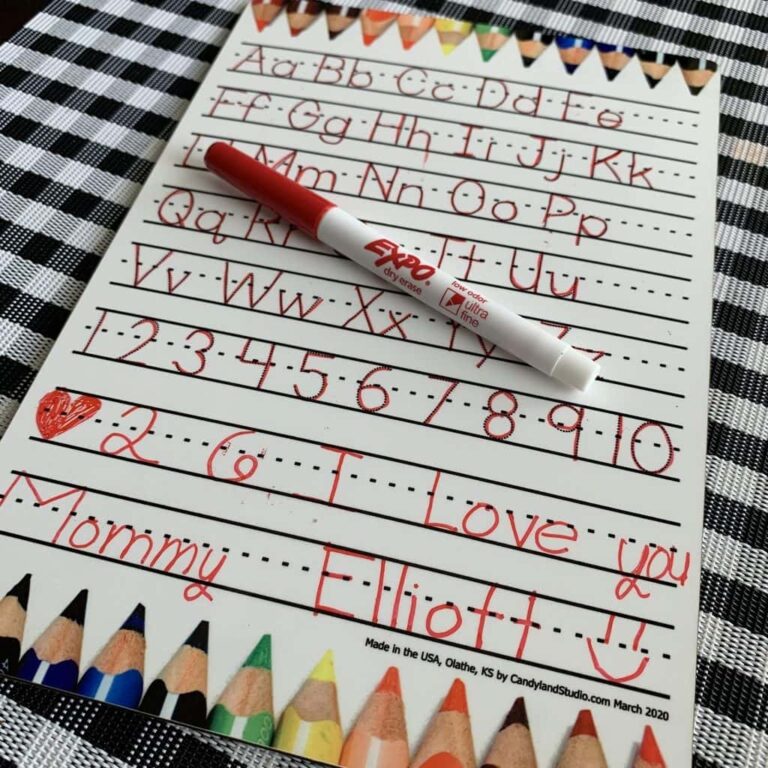 Aa Bb Cc Dd Ee
Ff Gg Hh Ii Jj Kk
Ll Mm Nn Oo Pp
Qq Rr Tt Uu
Vv Ww Xx Yy Zz
EXPO
dry erase
low odor
ultra
fine
1 2 3 4 5 6 7 8 9 10
2 6 I Love you
Mommy Elliott
Made in the USA, Olathe, KS by CandylandStudio.com March 2020